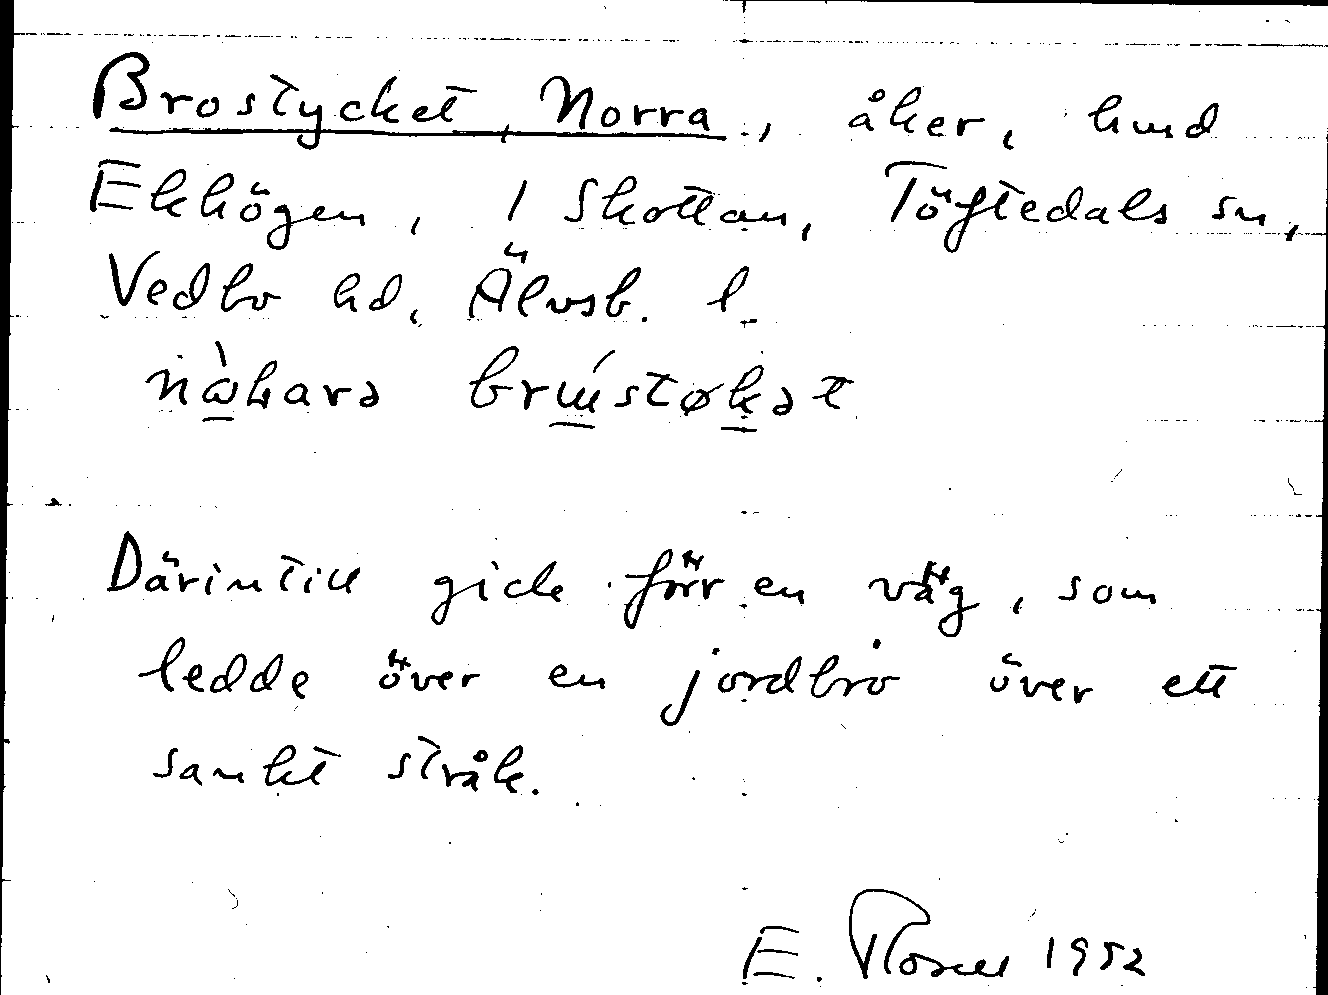 Brostycket, Norra, åker, hmd
Ekhögen, 1 Skottan, Töftedals sn,
Vedbo hd, Älvsb. l.
Därintill gick förr en väg, som
ledde över en jordbro över ett
sankt stråk.
E. 1952